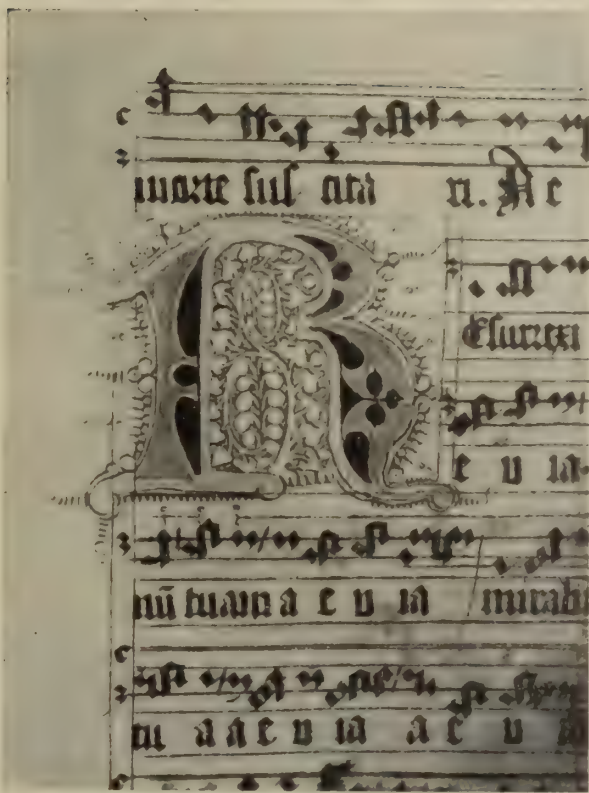 morte sus cita ti. A e
R
Esurrexi
e u ia.
nū tuam a e u ia mirabi
tu a a e u ia a e u